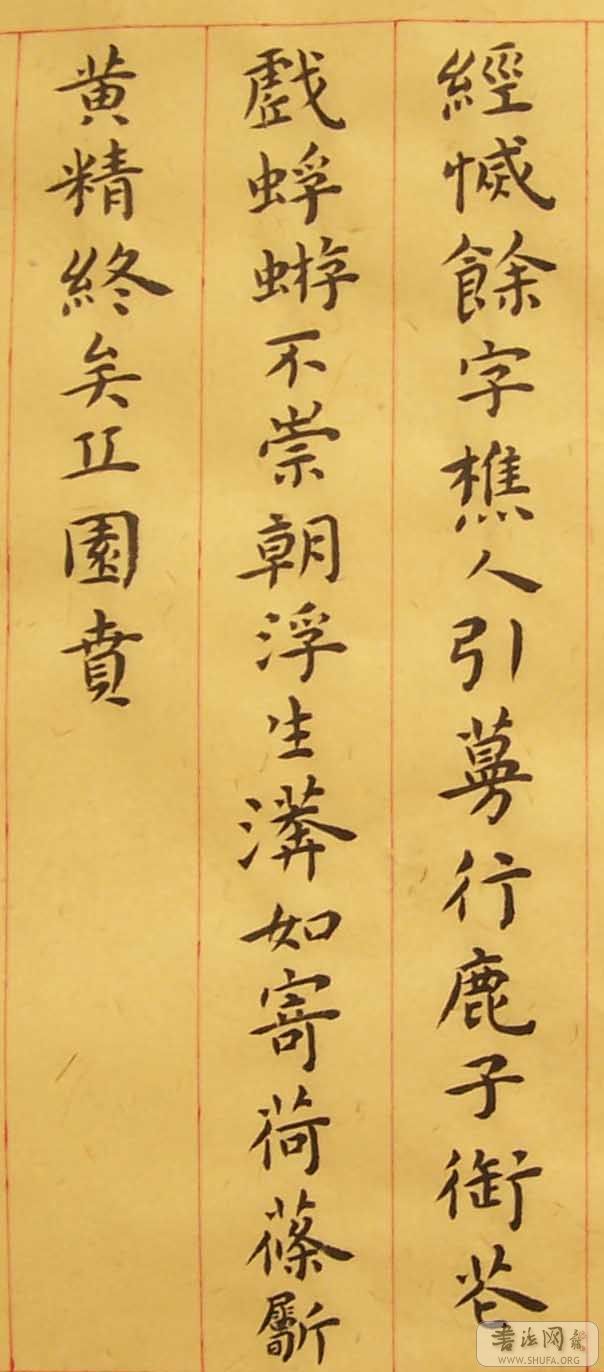 經滅餘字樵人引夢行鹿子銜花
戲蜉蝣不崇朝浮生漭如寄荷蓧斸
黄精終矣丘園賁
書法网
WWW.SHUFA.ORG